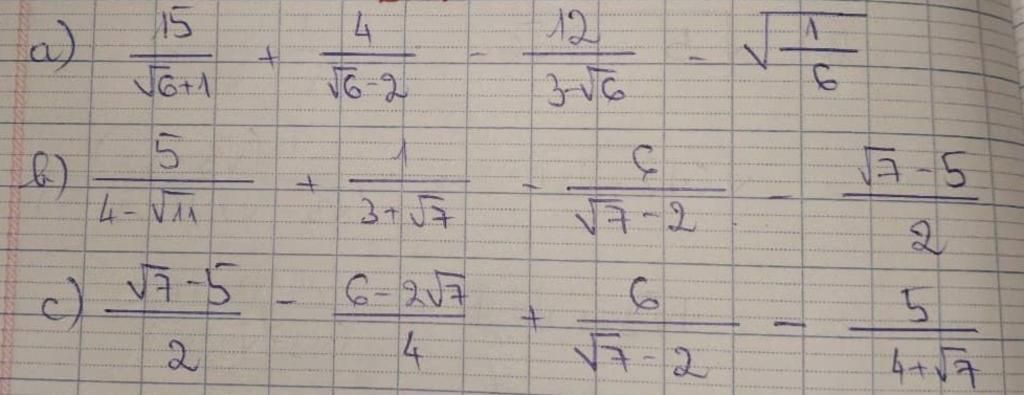 a) 15/(√6+1) + 4/(√6-2) - 12/(3-√6) - √(1/6)
b) 5/(4-√11) + 1/(3+√7) - 6/(√7-2) - (√7-5)/2
c) (√7-5)/2 - (6-2√7)/4 + 6/(√7-2) - 5/(4+√7)